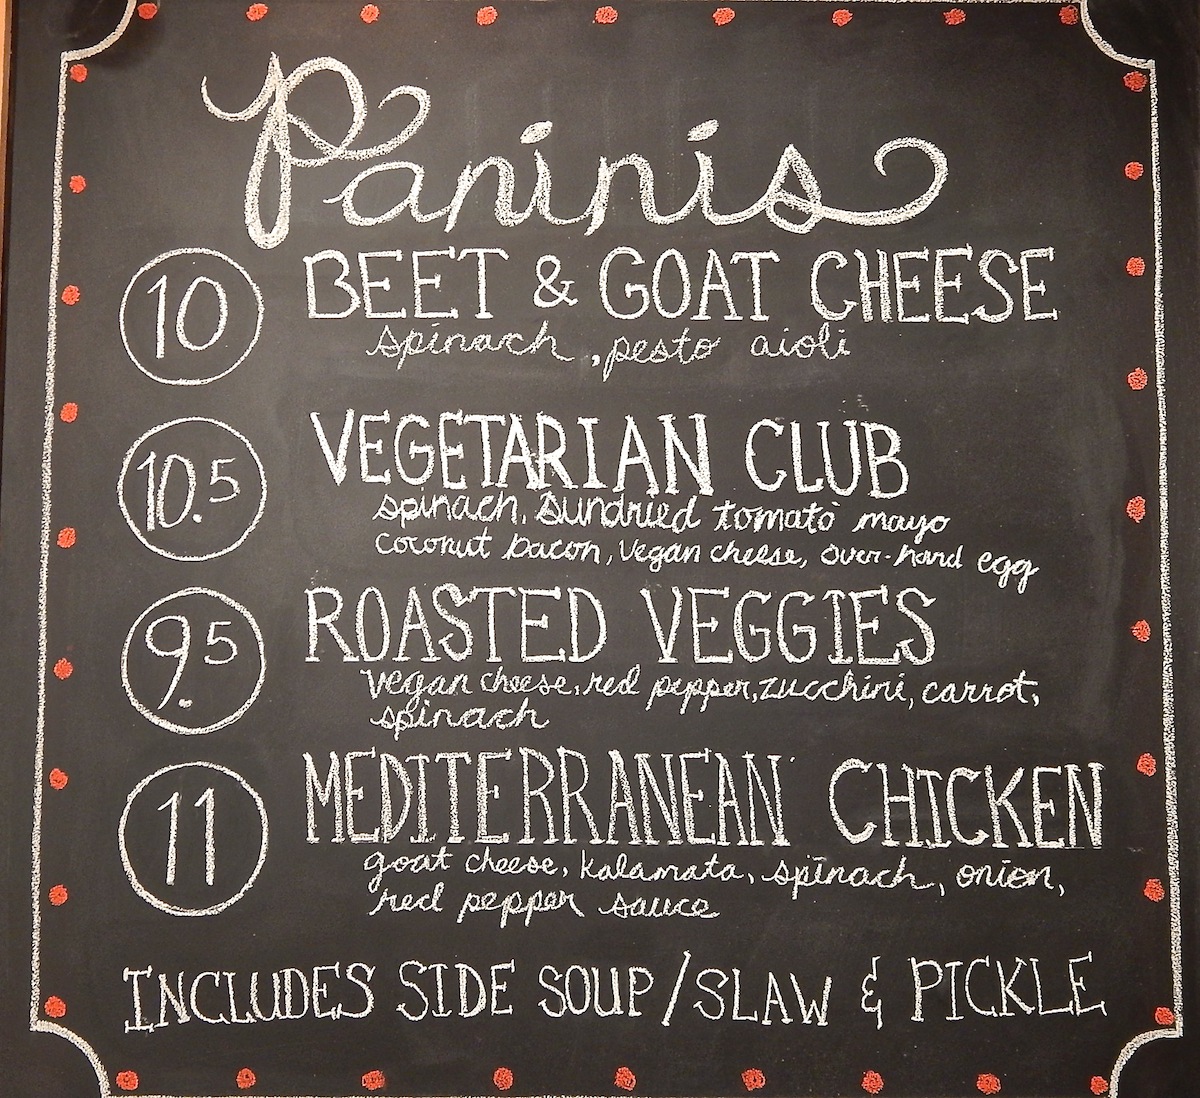 Paninis
10 BEET & GOAT CHEESE
spinach, pesto aioli
10.5 VEGETARIAN CLUB
spinach, sundried tomato mayo
coconut bacon, vegan cheese, over-hard egg
9.5 ROASTED VEGGIES
vegan cheese, red pepper, zucchini, carrot,
spinach
11 MEDITERRANEAN CHICKEN
goat cheese, kalamata, spinach, onion,
red pepper sauce
INCLUDES SIDE SOUP/SLAW & PICKLE